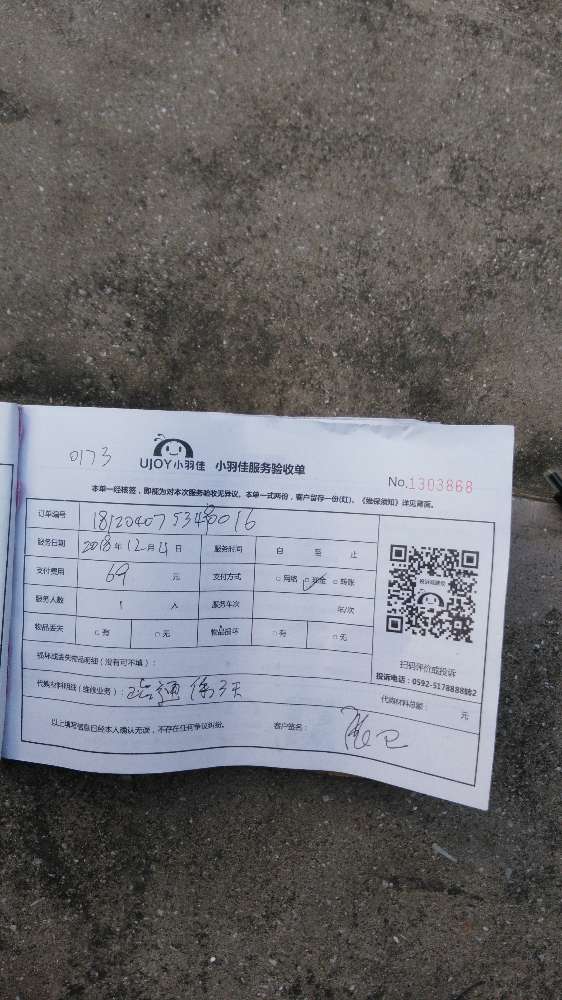 0173
UJOY小羽佳 小羽佳服务验收单
No.1303868
本单一经核签，即视为对本次服务验收无异议。本单一式两份，客户留存一份(红)。《维保须知》详见背面。
订单编号
服务日期 2018年12月4日 服务时间 自 至 止
支付费用 69 元 支付方式 □网络 □现金 □转账
服务人数 1 人 服务车次 年/次
物品丢失 □有 □无 物品损坏 □有 □无
损坏或丢失物品明细（没有可不填）：
代购材料明细（维修业务）： 疏通保3天
代购材料总额： 元
以上填写信息已经本人确认无误，不存在任何争议纠纷。 客户签名：
投诉或建议
扫码评价或投诉
投诉电话：0592-5178888转2